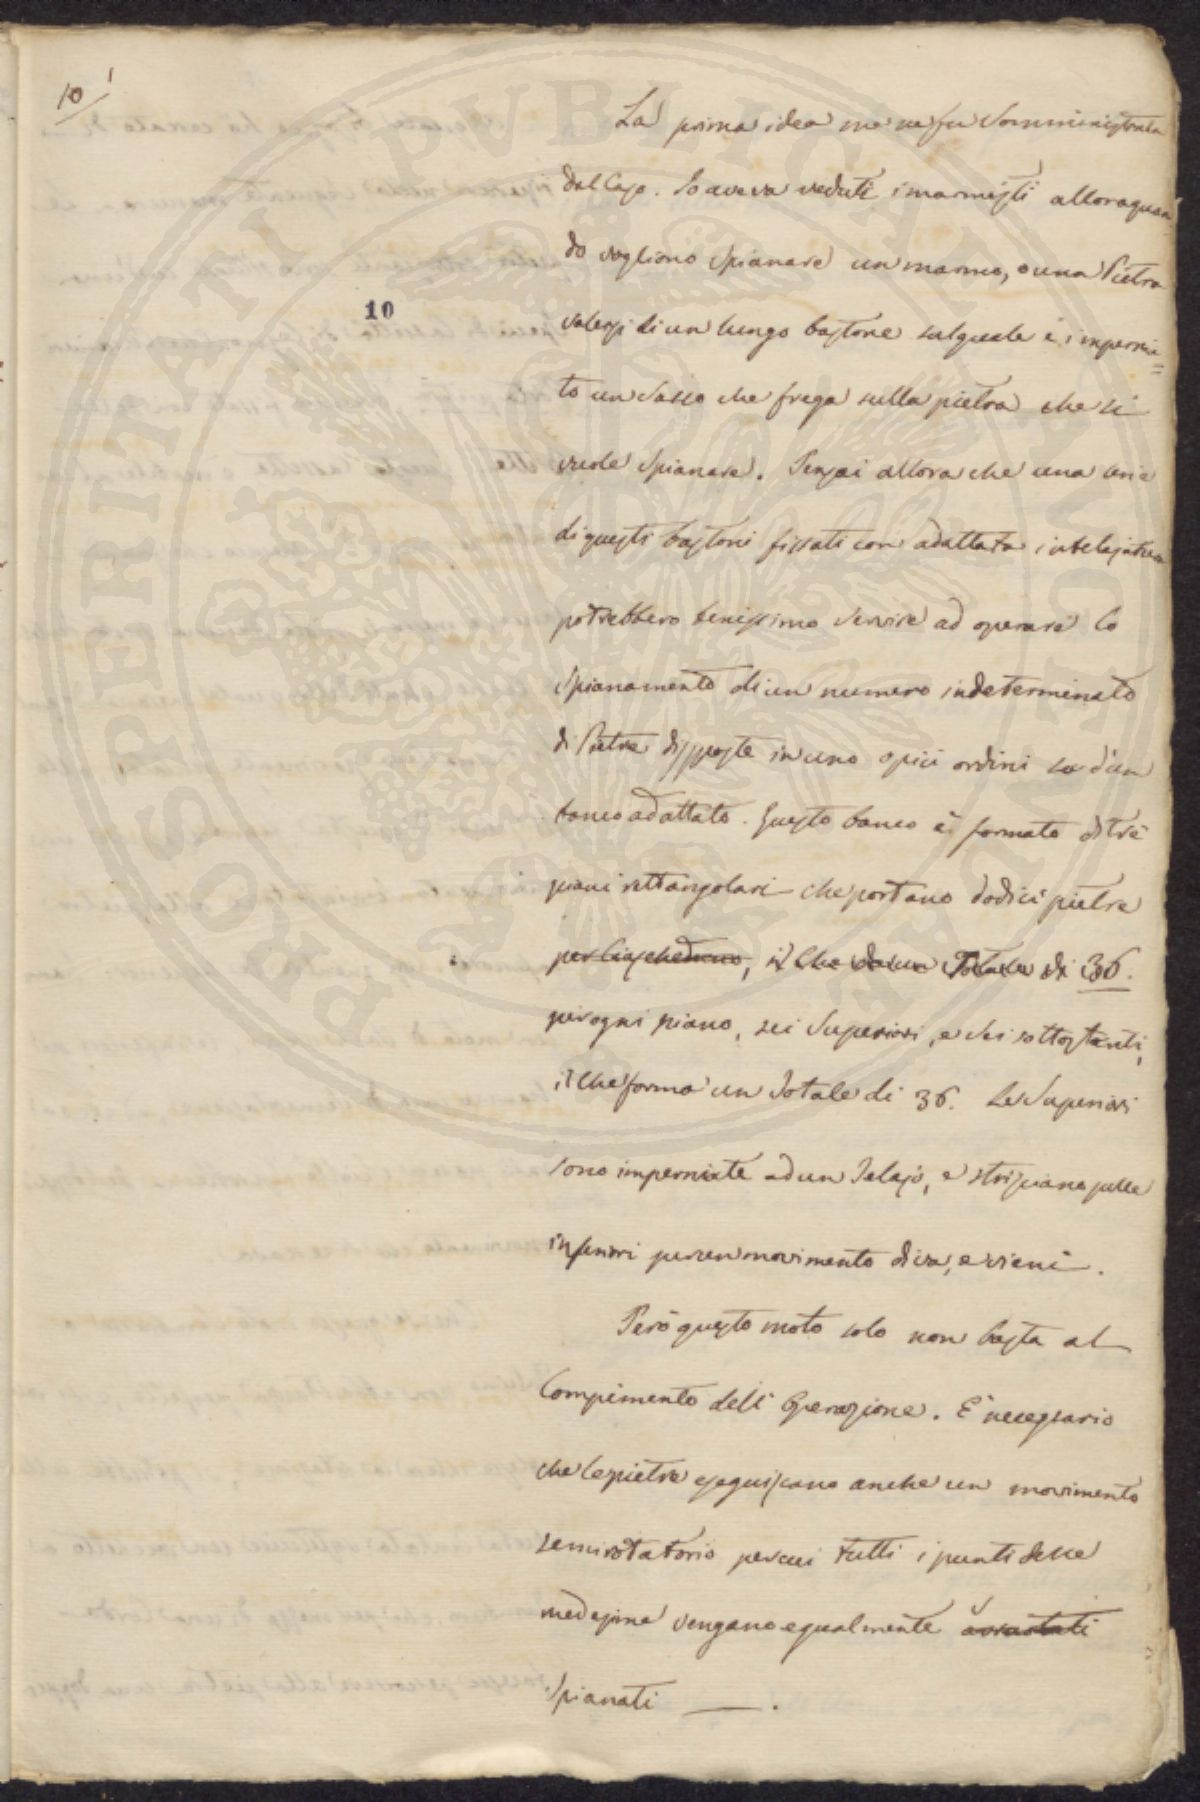 10 1
La prima idea me ne fu Somministrata
dal Caso. Io aveva veduti i marmisti alloraquan=
do vogliono Spianare un marmo, o una Pietra
valersi di un lungo bastone sul quale è impernia=
to un Sasso che frega sulla pietra che si
vuole Spianare. Pensai allora che una serie
di questi bastoni fissati con adattata intelajatura
potrebbero benissimo Servire ad operare lo
Spianamento di un numero indeterminato
di Pietre disposte in uno o più ordini su d'un
banco adattato. Questo banco è formato di tre
piani rettangolari che portano dodici pietre
per Ciascheduno, il Che da un Totale di 36.
per ogni piano, sei Superiori, e Sei sottostanti,
il Che forma un Totale di 36. Le Superiori
sono imperniate ad un Telajo, e strisciano sulle
inferiori per un movimento di va, e vieni.
Però questo moto solo non basta al
Compimento dell' Operazione. E' necessario
che le pietre eseguiscano anche un movimento
semirotatorio per cui tutti i punti delle
medesime vengano egualmente arrotati
Spianati ——.
10
PROSPERITATI PVBLICAE